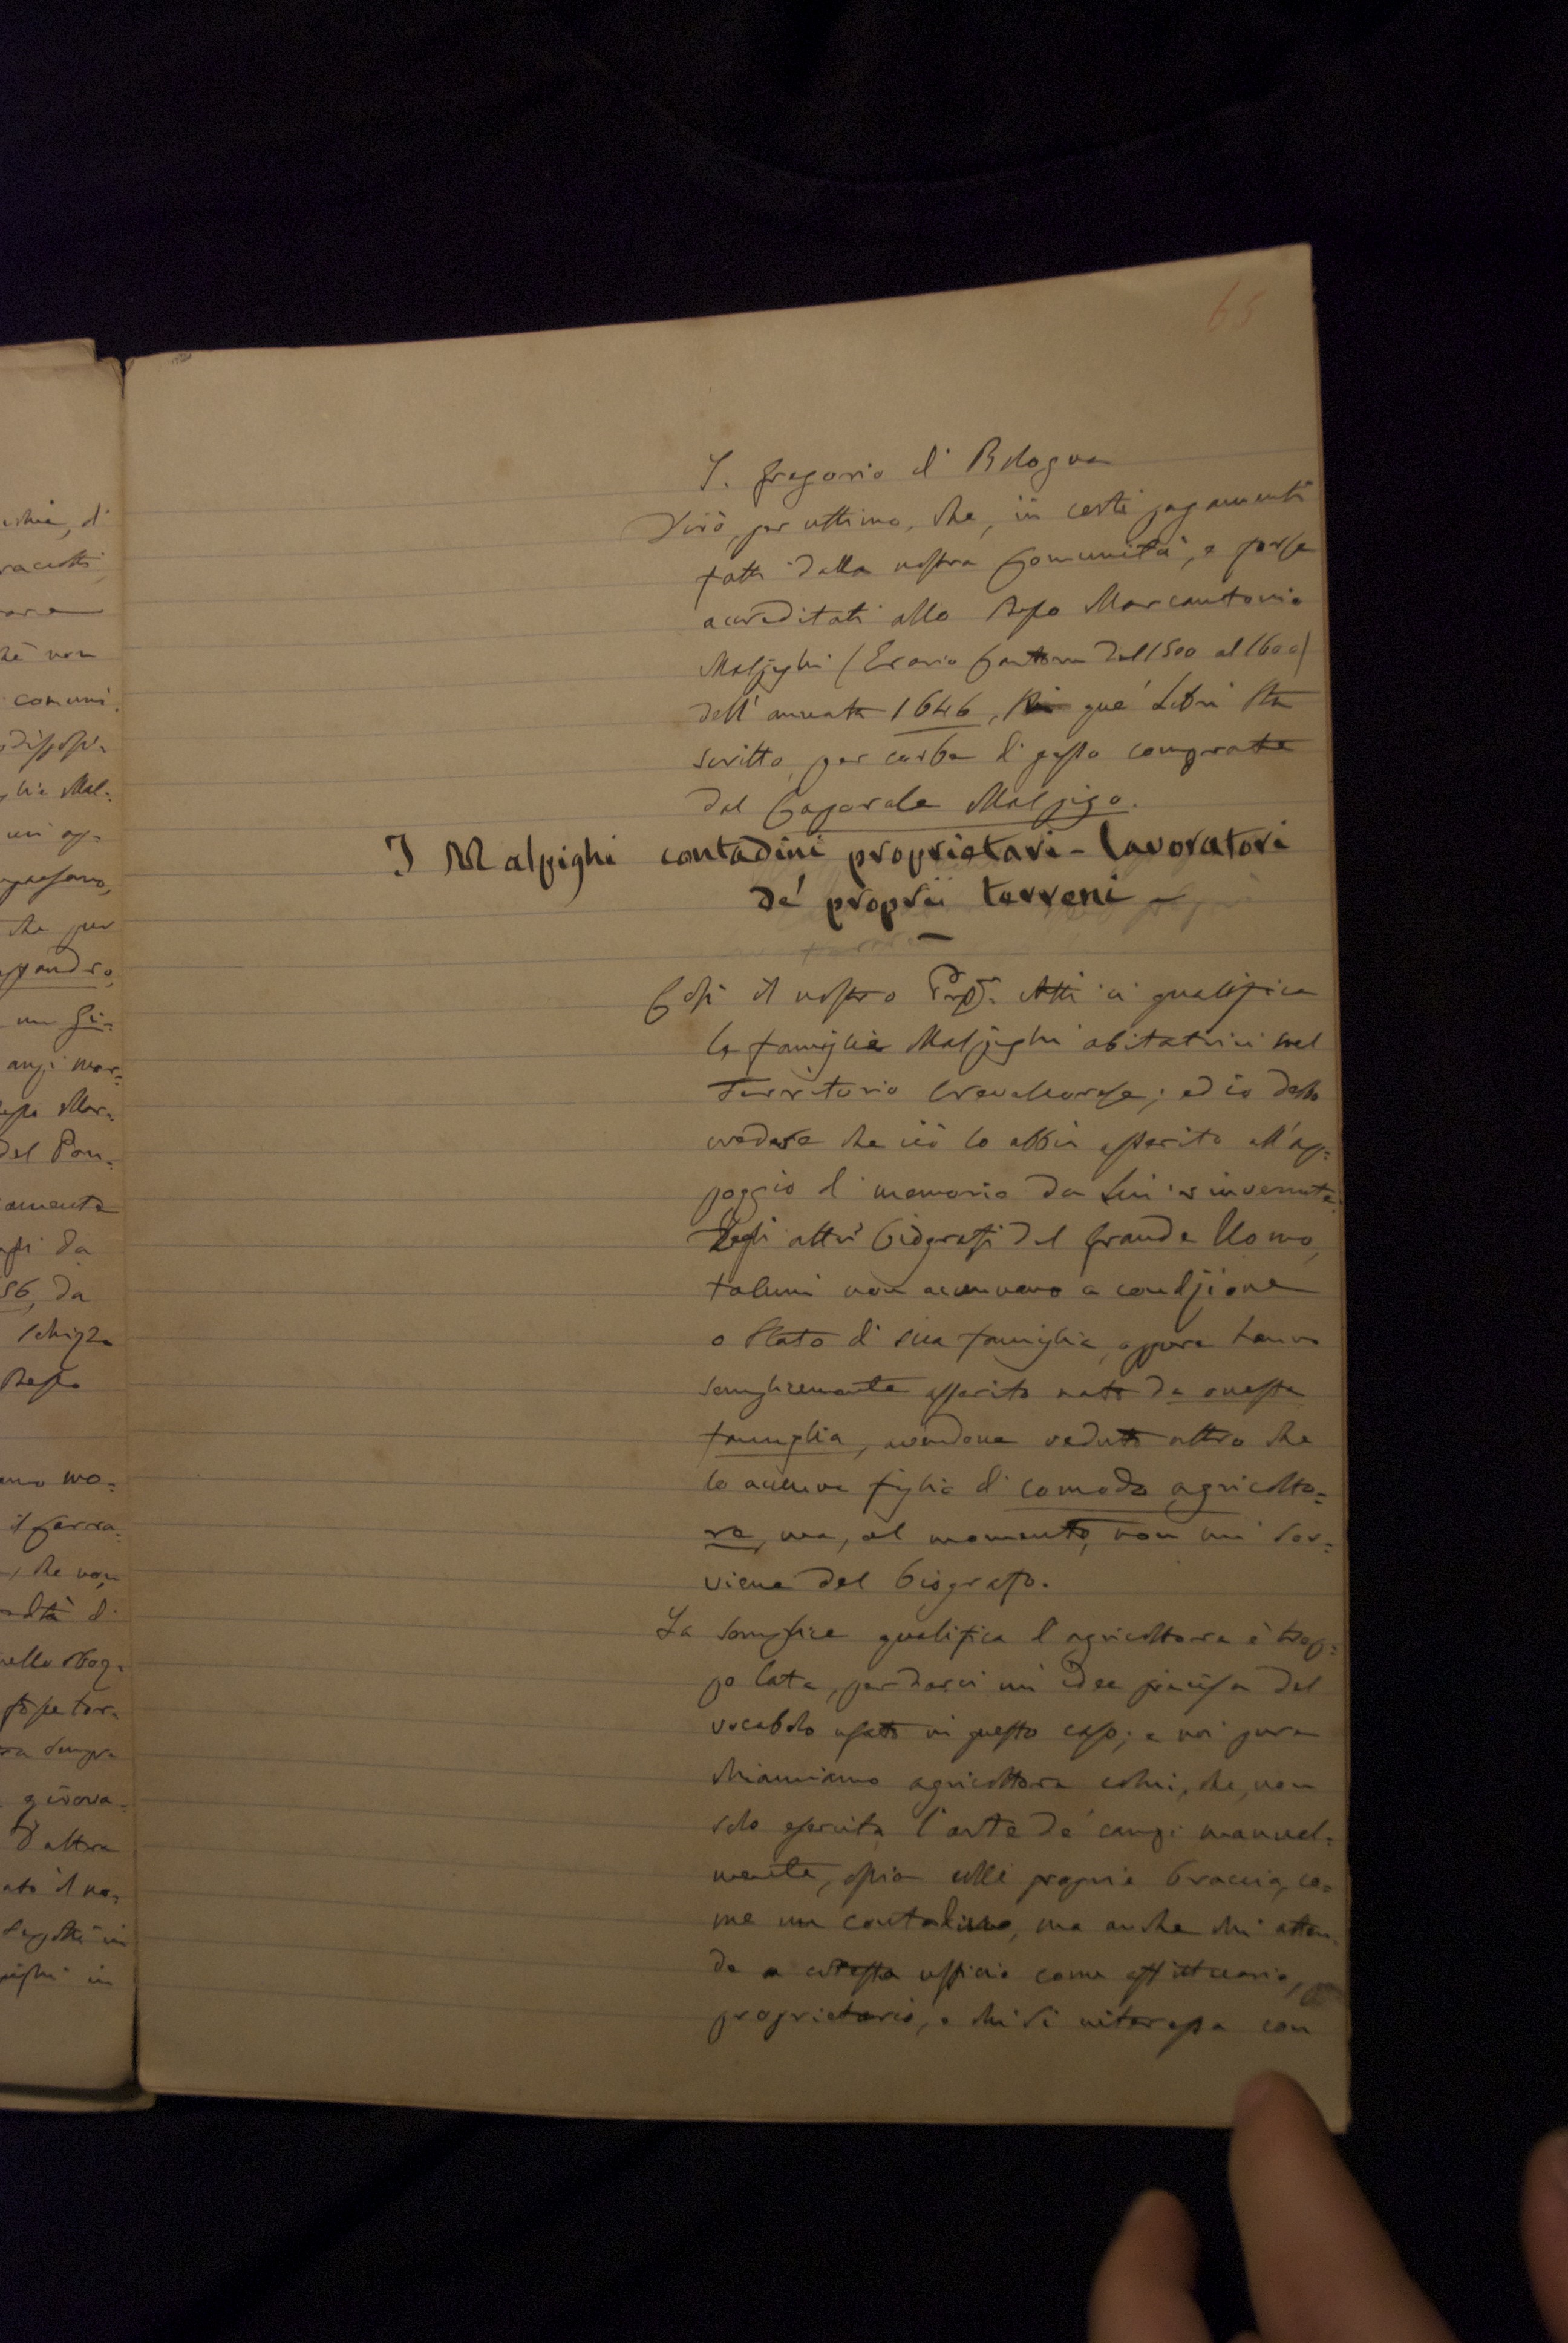 65
S. Gregorio di Bologna
Dirò, per ultimo, che, in certi pagamenti
fatti dalla nostra Comunità, e forse
accreditati allo stesso Marcantonio
Malpighi (Erario Cantone dal 1500 al 1600)
dell'annata 1646, que' Libri sta
scritto, per corbe di gesso comprate
dal Caporale Malpigo.
I Malpighi contadini proprietari - lavoratori
de' proprii terreni -
Così il nostro Prof. Atti ci qualifica
le famiglie Malpighi abitatrici nel
Territorio Crevalcorese; ed io debbo
credere che ciò lo abbia asserito all'ap=
poggio di memorie da Lui rinvenute.
Degli altri biografi del Grande Uomo,
taluni non accennano a condizione
o stato di sua famiglia, oppure hanno
semplicemente asserito nato da onesta
famiglia, avendone veduto altro che
lo accenna figlio di comodo agricolto=
re, ma, al momento, non mi sov=
viene del biografo.
La semplice qualifica d'agricoltore è trop=
po lata, per darci un'idea precisa del
vocabolo usato in questo caso; e noi pure
chiamiamo agricoltore colui, che, non
solo esercita l'arte de' campi manual=
mente, ossia colle proprie braccia, co=
me un contadino, ma anche chi atten=
de a cotesto ufficio come affittuario,
proprietario, e chi si interessa con
ischie, di
racolti
che non
comuni
glie Mal=
un ap=
che per
un Gi=
anzi mor=
stesso Mar=
del Pon=
56, da
stesso
mo mo=
il ferra=
, che non
girova=
d'altra
ato il no=